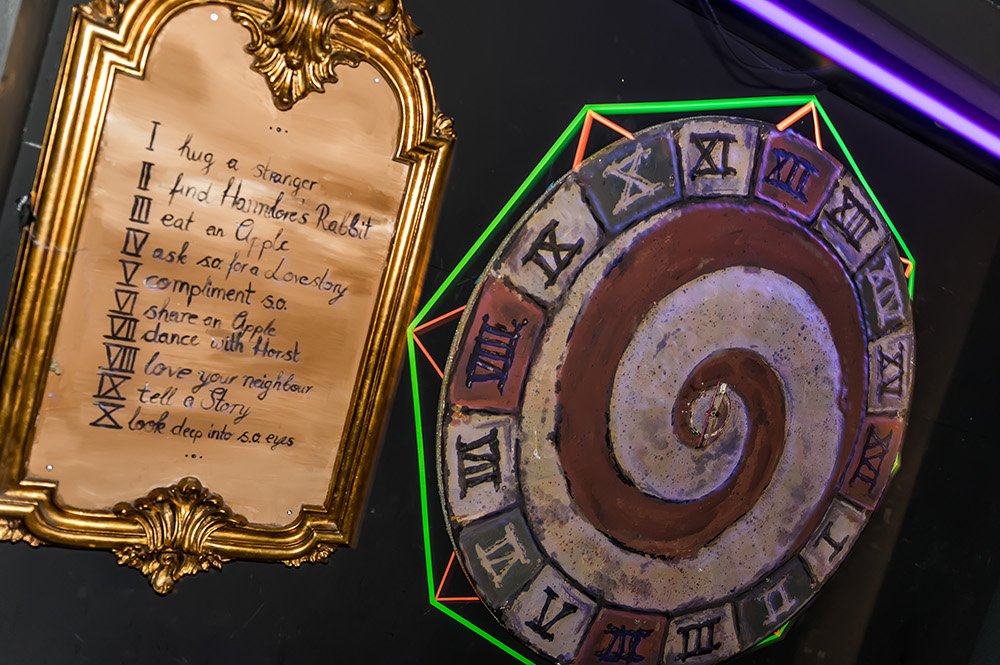 I hug a stranger
II find Rabbit
III eat an Apple
IV ask s.o. for a Lovestory
V compliment s.o.
VI share an Apple
VII dance with Horst
VIII love your neighbour
IX tell a Story
X look deep into s.o. eyes
X
XI
XII
XIII
XIV
XV
XVI
I
II
III
V
VI
VII
VIII
IX